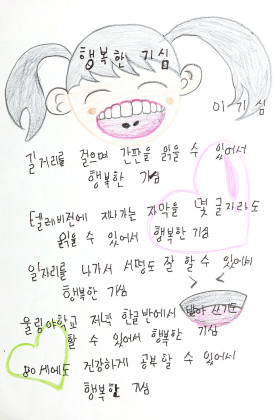 행복한 기심
이 기 심
길거리를 걸으며 간판을 읽을 수 있어서
행복한 기심
텔레비전에 지나가는 자막을 몇 글자라도
읽을 수 있어서 행복한 기심
일자리를 나가서 서명도 잘 할 수 있어서
행복한 기심
울림야학교 저녁 한글반에서 받아 쓰기도
할 수 있어서 행복한 기심
80세에도 건강하게 공부 할 수 있어서
행복한 기심